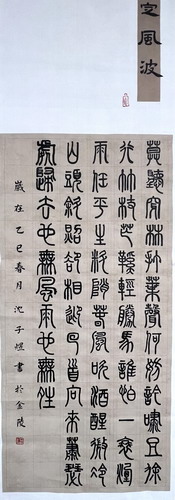 定風波
莫聽穿林打葉聲何妨吟嘯且徐
行竹杖芒鞋輕勝馬誰怕一蓑煙
雨任平生料峭春風吹酒醒微冷
山頭斜照卻相迎回首向來蕭瑟
處歸去也無風雨也無晴
歲在乙巳春月沈子煜書於金陵